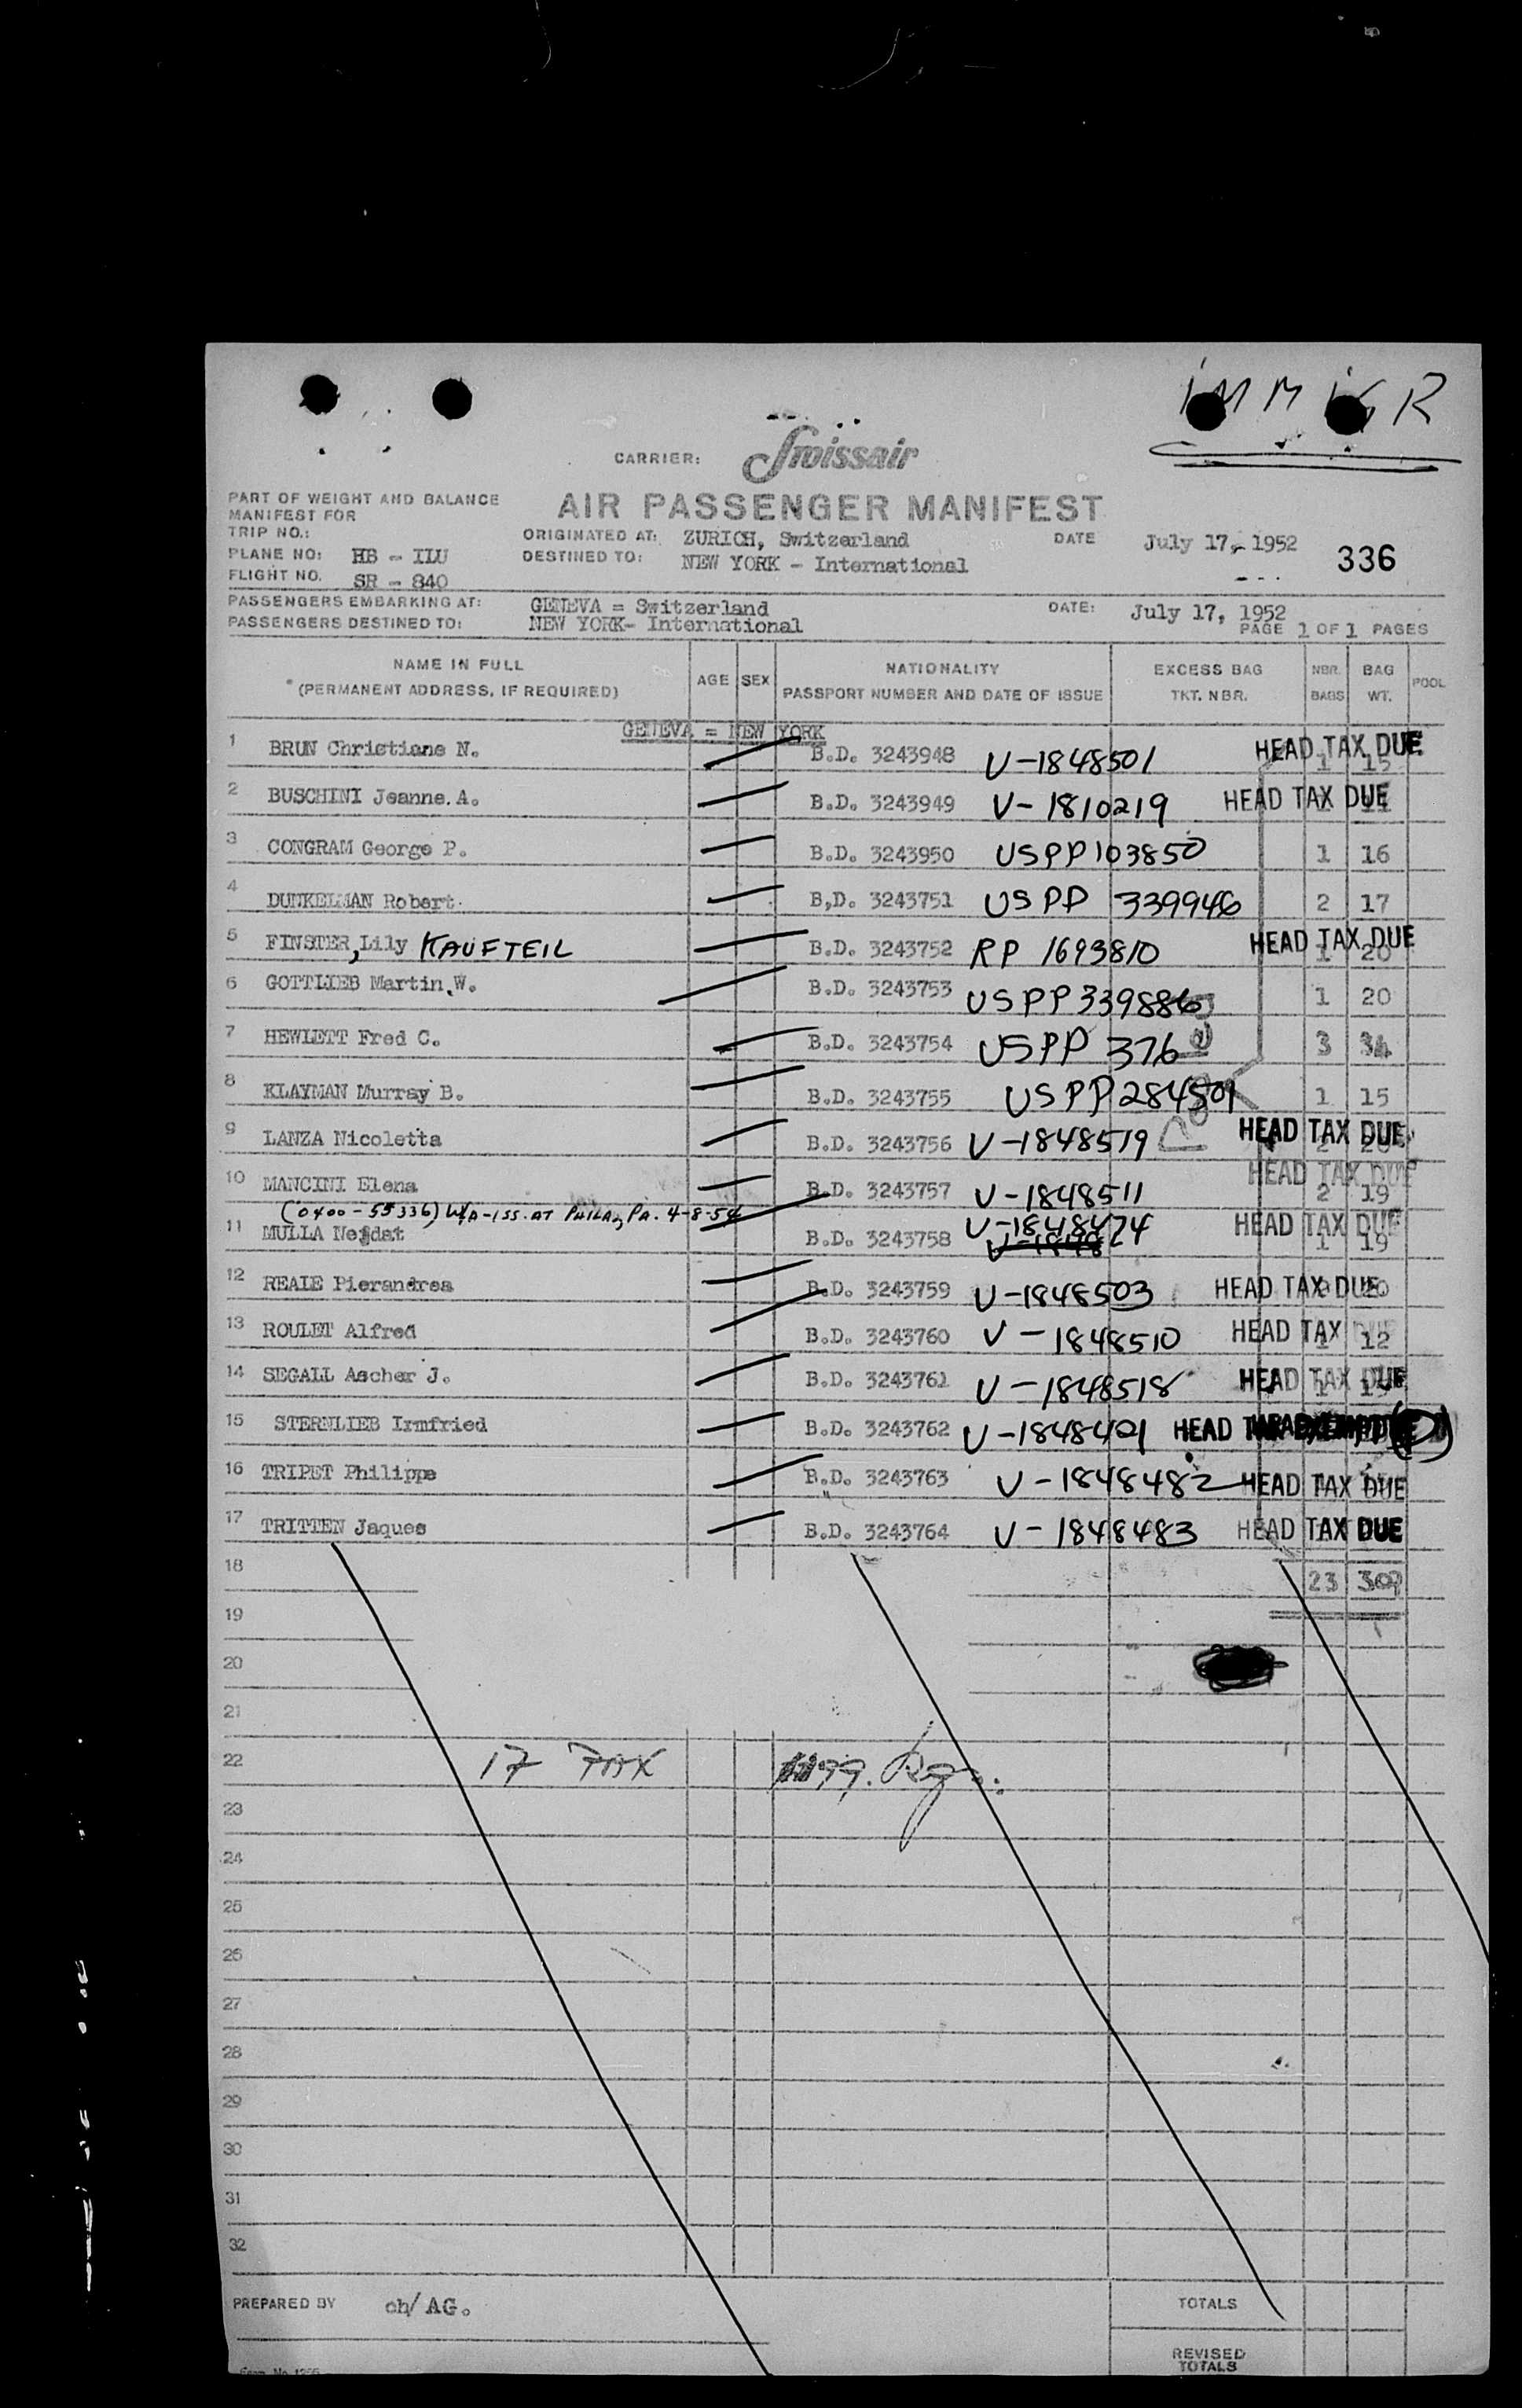 IMMIGR
CARRIER: Swissair
PART OF WEIGHT AND BALANCE
MANIFEST FOR
AIR PASSENGER MANIFEST
TRIP NO.:
ORIGINATED AT: ZURICH, Switzerland DATE July 17, 1952 336
PLANE NO: HB - ILU
DESTINED TO: NEW YORK - International
FLIGHT NO. SR - 840
PASSENGERS EMBARKING AT: GENEVA = Switzerland DATE: July 17, 1952
PASSENGERS DESTINED TO: NEW YORK- International PAGE 1 OF 1 PAGES
NAME IN FULL AGE SEX NATIONALITY EXCESS BAG NBR. BAG POOL
*(PERMANENT ADDRESS, IF REQUIRED) PASSPORT NUMBER AND DATE OF ISSUE TKT. NBR. BAGS WT.
GENEVA = NEW YORK
1 BRUN Christiane N. B.D. 3243948 V-1848501 HEAD TAX DUE 1 15
2 BUSCHINI Jeanne.A. B.D. 3243949 V-1810219 HEAD TAX DUE
3 CONGRAM George P. B.D. 3243950 USPP103850 1 16
4 DUNKELMAN Robert B,D. 3243751 USPP 339946 2 17
5 FINSTER, Lily KAUFTEIL B.D. 3243752 RP 1693810 HEAD TAX DUE 1 20
6 GOTTLIEB Martin.W. B.D. 3243753 USPP339886 1 20
7 HEWLETT Fred C. B.D. 3243754 USPP 376 3 34
8 KLAYMAN Murray B. B.D. 3243755 USPP284501 1 15
9 LANZA Nicoletta B.D. 3243756 V-1848519 HEAD TAX DUE
10 MANCINI Elena B.D. 3243757 V-1848511 HEAD TAX DUE 2 19
(0400-55336) W/A-ISS. AT PHILA, PA. 4-8-54
11 MULLA Nejdat B.D. 3243758 V-1848474 HEAD TAX DUE 1 19
12 REALE Pierandrea B.D. 3243759 V-1848503 HEAD TAX DUE
13 ROULET Alfred B.D. 3243760 V-1848510 HEAD TAX DUE 1 12
14 SEGALL Ascher J. B.D. 3243761 V-1848518 HEAD TAX DUE
15 STERNLIEB Irmfried B.D. 3243762 V-1848401 HEAD
16 TRIPET Philippe B.D. 3243763 V-1848482 HEAD TAX DUE
17 TRITTEN Jaques B.D. 3243764 V-1848483 HEAD TAX DUE
18 23 309
19
20
21
22 17 PAX
23
24
25
26
27
28
29
30
31
32
PREPARED BY ch/AG. TOTALS
REVISED
TOTALS